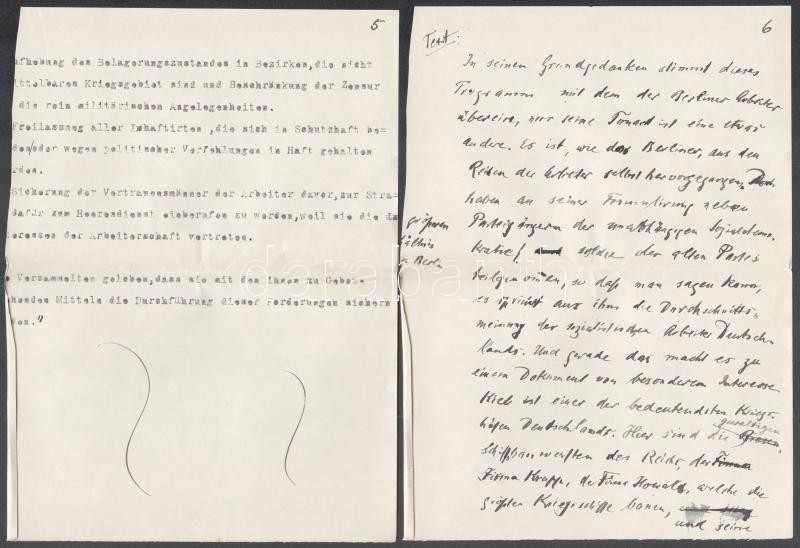 5
ufhebung des Belagerungszustandes in Bezirken, die nicht
ittelbares Kriegsgebiet sind und Beschränkung der Zensur
die rein militärischen Angelegenheiten.
Freilassung aller Inhaftirten, die sich in Schutzhaft be-
den oder wegen politischer Verfehlungen in Haft gehalten
rden.
Sicherung der Vertrauensmänner der Arbeiter davor, zur Stra-
dafür zum Heeresdienst einberufen zu werden, weil sie die In
eressen der Arbeiterschaft vertreten.
Versammelten geloben, dass sie mit den ihnen zu Gebot
henden Mitteln die Durchführung dieser Forderungen sichern
den."
6
Text:
In seinen Grundgedanken stimmt dieses
Programm mit dem der Berliner Arbeiter
überein, nur seine Tonart ist eine etwas
andere. Es ist, wie das Berliner, aus den
Reihen der Arbeiter selbst hervorgegangen. Doch
haben an seiner Formulierung neben
größeren
Parteigängern der unabhängigen Sozialdemo-
ältnis
kratie solche der alten Partei
n Berlin
teilgenommen, so daß man sagen kann,
es spricht aus ihm die Durchschnitts-
meinung der sozialistischen Arbeiter Deutsch-
lands. Und gerade das macht es zu
einem Dokument von besonderem Interesse
Kiel ist einer der bedeutendsten Kriegs-
häfen Deutschlands. Hier sind die gewaltigen
Schiffbauwerften des Reichs, der
Firma Krupp, der Firma Howald, welche die
größten Kriegsschiffe bauen,
und seine
darabanth.com